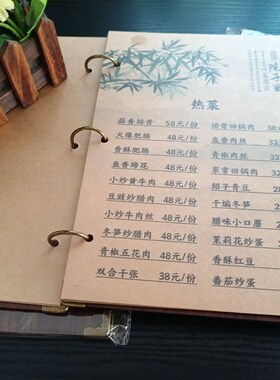 热菜
蒜香排骨 58元/份
火爆肥肠 48元/份
香酥肥肠 48元/份
鱼香蹄花 48元/份
小炒黄牛肉 48元/份
豆豉炒腊肉 48元/份
小炒牛肉丝 48元/份
冬笋炒腊肉 48元/份
青椒五花肉 48元/份
双合千张 38元/份
排骨回锅肉 38
鱼香肉丝 32
青椒肉丝 32
家常回锅肉
绍子青豆
干编冬笋
腊味小口蘑
茉莉花炒蛋
香酥红豆
番茄炒蛋